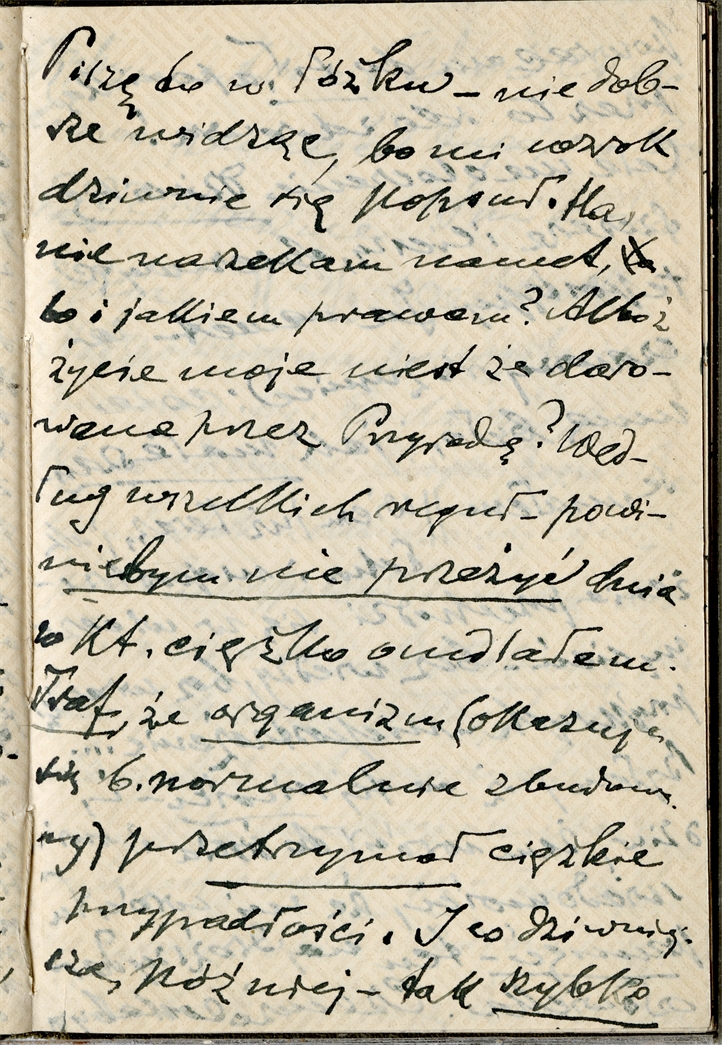 Piszę to w łóżku – nie dob-
rze widzę, bo mi wzrok
dziwnie się popsuł. Ha,
nie narzekam nawet,
bo i jakiem prawem? Alboż
życie moje niest że daro-
wane przez Przyrodę? Wed-
ług wszelkich reguł – powi-
niebym nie przeżyć dnia
w kt. ciężko omdlałem.
Traf, że organizm (okazuje
się b. normalnie zbudowa-
ny) przetrzymał ciężkie
przypadłości. I co dziwniej-
sze, później – tak szybko